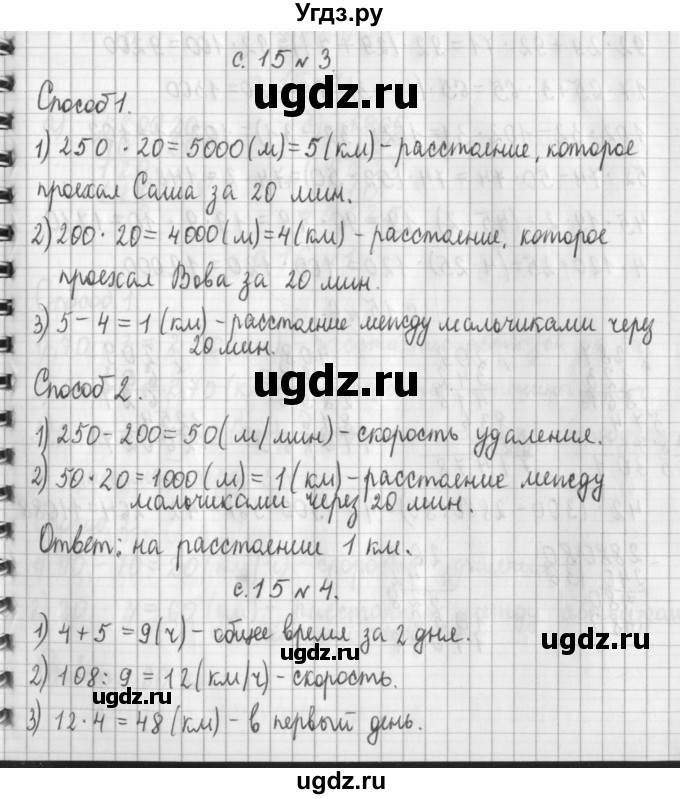 Угдз.ру
с. 15 № 3.
ugdz.ru
Способ 1.
1) 250 · 20 = 5000 (м) = 5 (км) – расстояние, которое
проехал Саша за 20 мин.
2) 200 · 20 = 4000 (м) = 4 (км) – расстояние, которое
проехал Вова за 20 мин.
3) 5 – 4 = 1 (км) – расстояние между мальчиками через
20 мин.
ugdz.ru
Способ 2.
1) 250 – 200 = 50 (м/мин) – скорость удаления.
2) 50 · 20 = 1000 (м) = 1 (км) – расстояние между
мальчиками через 20 мин.
Ответ: на расстоянии 1 км.
с. 15 № 4.
1) 4 + 5 = 9 (ч) – общее время за 2 дня.
ugdz.ru
ugdz.ru
2) 108 : 9 = 12 (км/ч) – скорость.
3) 12 · 4 = 48 (км) – в первый день.
ugdz.ru